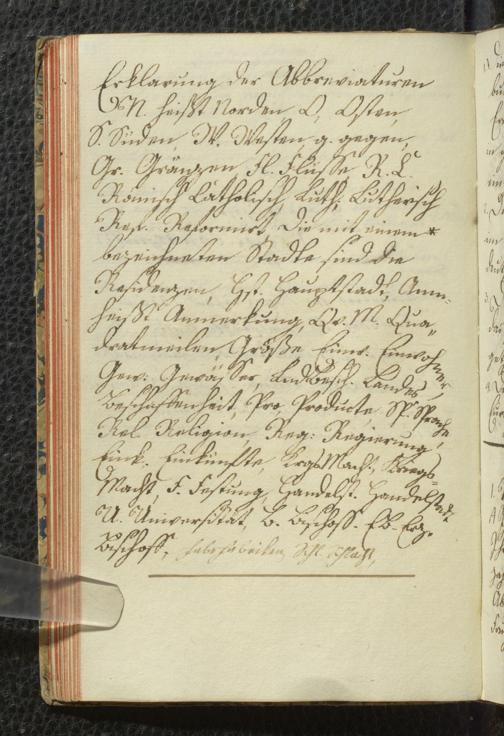 Erklarung der Abbreviaturen
N. heißt Norden O, Osten,
S. Süden, W. Westen, g. gegen,
Gr. Gränzen, Fl. Flüsse, R. C.
Römisch Catholisch, Luth. Lutherisch
Ref. Reformirt, Die mit einem *
bezeichneten Stadte sind die
Residenzen, Hst. Hauptstadt, Anm-
heißt Anmerkung, Qu. M. Qua-
dratmeilen, Größe, Einw. Einwohner,
Gew: Gewässer, LndBesch. Landes
Beschaffenheit, Pro. Producte, Sp: Sprache,
Rel. Religion, Reg: Regierung,
Eink. Einkünfte, KrgsMacht, Kriegs-
Macht, F. Festung, Handelst. Handelstadt
U. Universität, B. Bischoff. Eb- Erz-
Bischoff, Schl. Schloß,